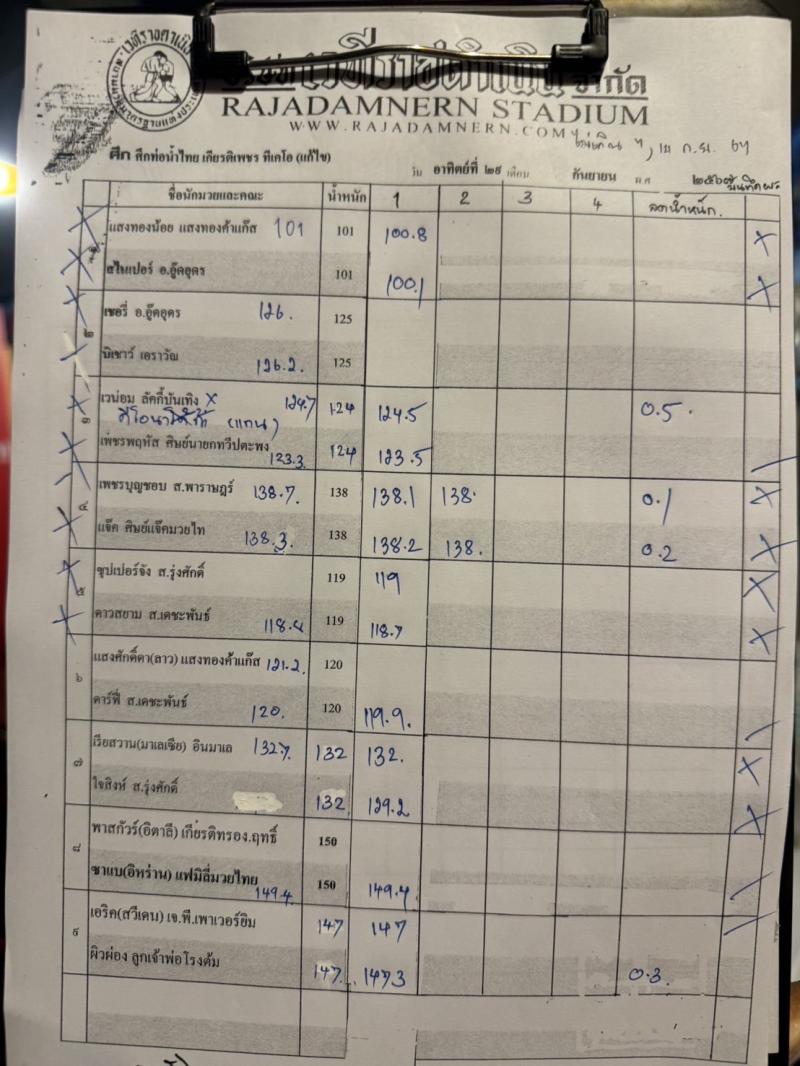 เวทีราชดำเนิน จำกัด
RAJADAMNERN STADIUM
WWW.RAJADAMNERN.COM
ก.ย. 67
ศึก ศึกท่อน้ำไทย เกียรติเพชร ทีเคโอ (แก้ไข) วัน อาทิตย์ที่ ๒๙ เดือน กันยายน พ.ศ ๒๕๖๗
ชื่อนักมวยและคณะ น้ำหนัก 1 2 3 4 ลดน้ำหนัก.
แสงทองน้อย แสงทองค้าแก๊ส 101 101 100.8 X
สไนเปอร์ อ.อู๊ดอุดร 101 100.1 X
๒ เชอรี่ อ.อู๊ดอุดร 126. 125
บิเซาว์ เอราวัณ 126.2. 125
๓ เวน่อม ลัคกี้บันเทิง X 124.7 124 124.5 0.5.
(แทน)
เพชรพฤหัส ศิษย์นายกทวีปตะพง 123.3. 124 123.5
๔ เพชรบุญชอบ ส.พาราษฎร์ 138.7. 138 138.1 138. 0.1 X
แจ๊ค ศิษย์แจ๊คมวยไท 138.3. 138 138.2 138. 0.2 X
๕ ซุปเปอร์จัง ส.รุ่งศักดิ์ 119 119 X
ดาวสยาม ส.เดชะพันธ์ 118.4 119 118.7 X
๖ แสงศักดิ์ดา(ลาว) แสงทองค้าแก๊ส 121.2. 120
ดาร์ฟี่ ส.เดชะพันธ์ 120. 120 119.9.
๗ เรียสวาน(มาเลเซีย) อินมาเล 132.7. 132 132. X
ใจสิงห์ ส.รุ่งศักดิ์ 132 129.2 X
๘ พาสกัวร์(อิตาลี) เกียรติทรอง.ฤทธิ์ 150
ซาแบ(อิหร่าน) แฟมิลี่มวยไทย 149.4 150 149.4
๙ เอริค(สวีเดน) เจ.พี.เพาเวอร์ยิม 147 147
ผิวผ่อง ลูกเจ้าพ่อโรงต้ม 147. 147.3 0.3.